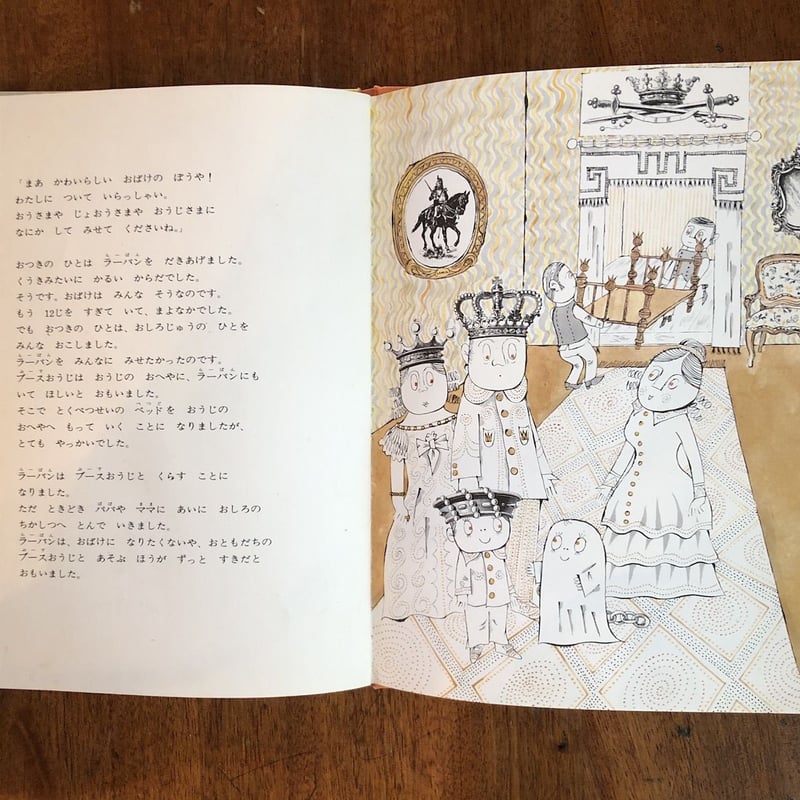 「まあ　かわいらしい　おばけの　ぼうや！
わたしに　ついて　いらっしゃい。
おうさまや　じょおうさまや　おうじさまに
なにか　して　みせて　くださいね。」
おつきの　ひとは　ラーバンを　だきあげました。
くうきみたいに　かるい　からだでした。
そうです。おばけは　みんな　そうなのです。
もう　12じを　すぎて　いて、まよなかでした。
でも　おつきの　ひとは、おしろじゅうの　ひとを
みんな　おこしました。
ラーバンを　みんなに　みせたかったのです。
ブースおうじは　おうじの　おへやに、ラーバンにも
いて　ほしいと　おもいました。
そこで　とくべつせいの　ベッドを　おうじの
おへやへ　もって　いく　ことに　なりましたが、
とても　やっかいでした。
ラーバンは　ブースおうじと　くらす　ことに
なりました。
ただ　ときどき　パパや　ママに　あいに　おしろの
ちかしつへ　とんで　いきました。
ラーバンは、おばけに　なりたくないや、おともだちの
ブースおうじと　あそぶ　ほうが　ずっと　すきだと
おもいました。